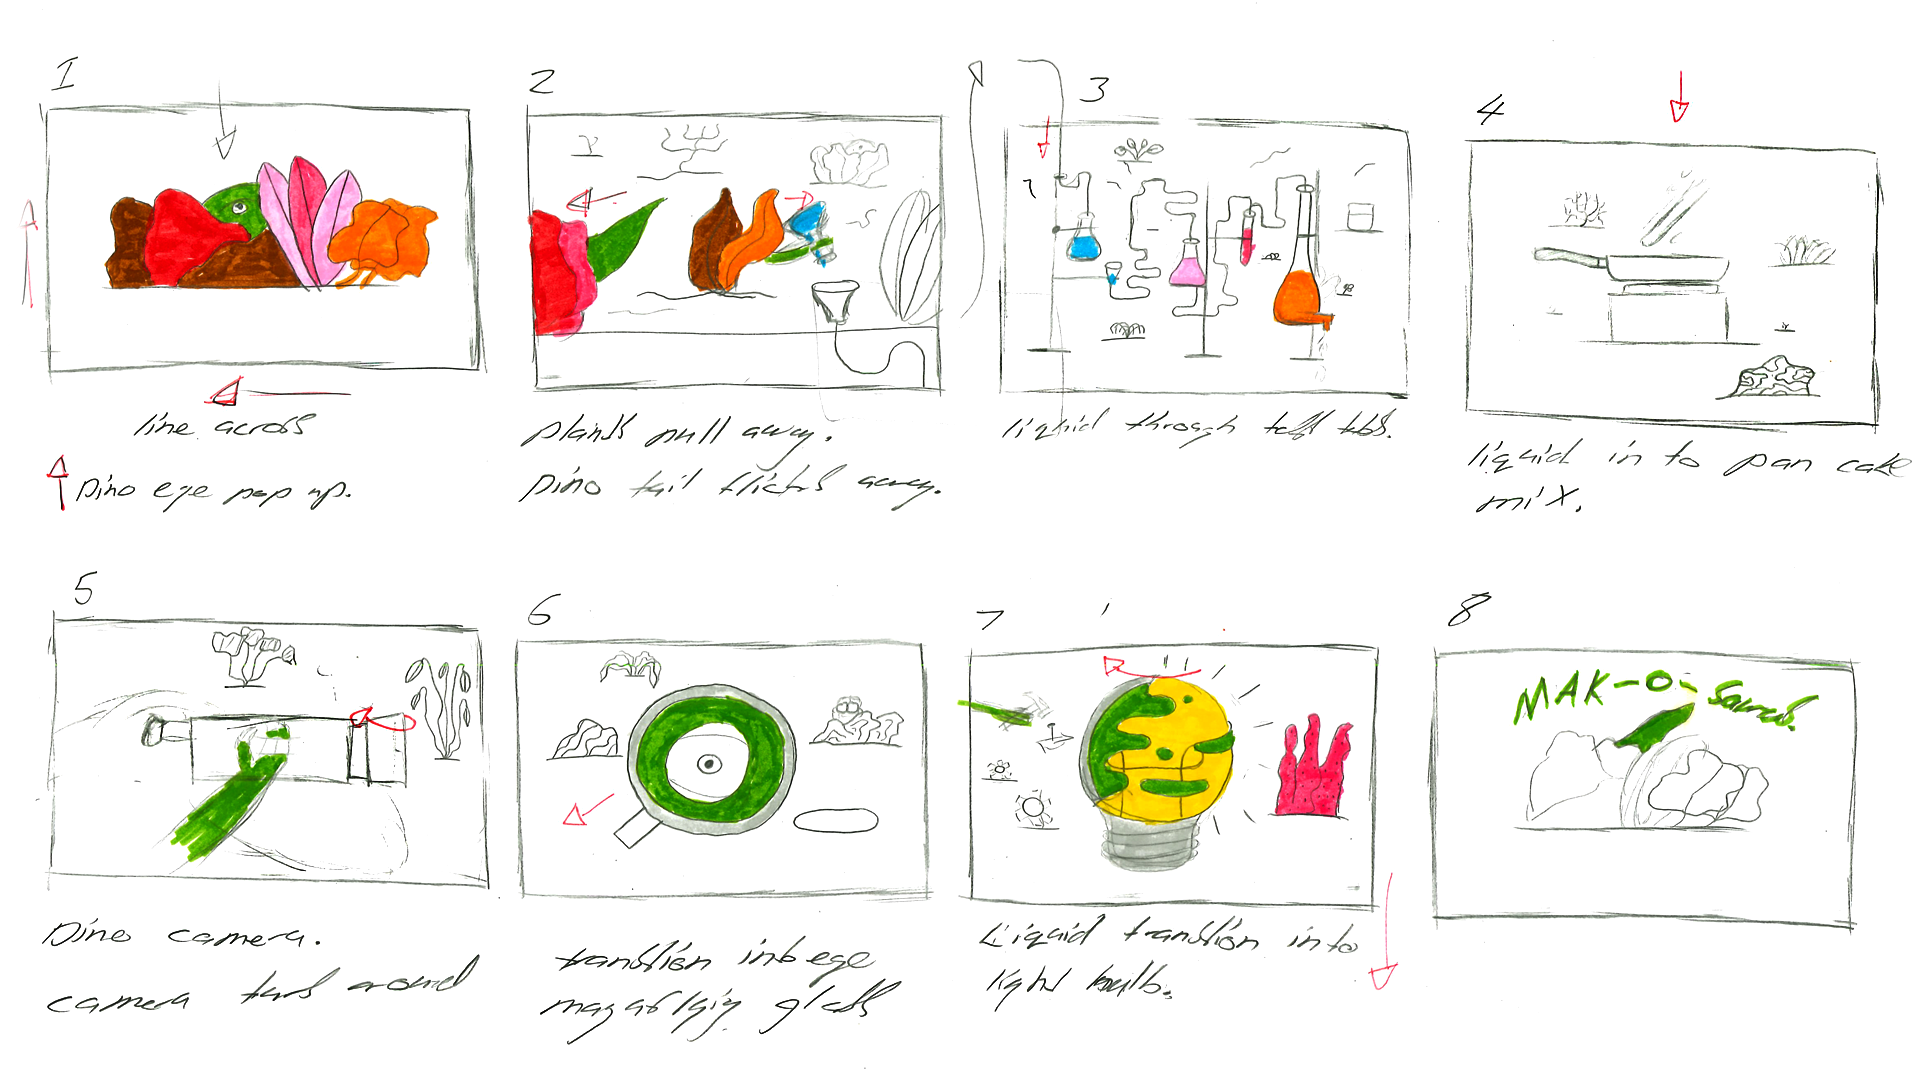 1
2
3
4
line across
↑ Dino eye pop up.
plants pull away.
Dino tail flicks away.
liquid through test tubs.
liquid in to pan cake
mix.
5
6
7
8
MAK-O-Saurus.
Dino camera.
camera turns around
transtion into eye
magnifying glass
Liquid transtion into
light bulb.